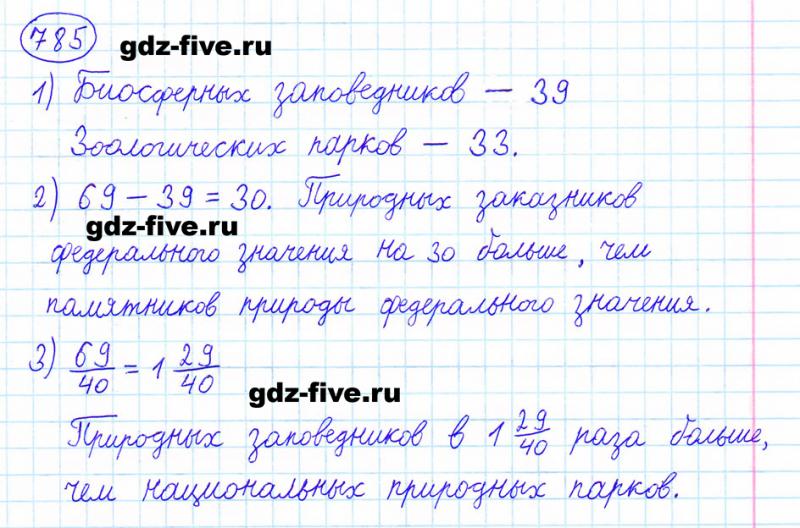 785
gdz-five.ru
1) Биосферных заповедников – 39
Зоологических парков – 33.
2) 69 – 39 = 30. Природных заказников
gdz-five.ru
федерального значения на 30 больше, чем
памятников природы федерального значения.
3) 69/40 = 1 29/40
gdz-five.ru
Природных заповедников в 1 29/40 раза больше,
чем национальных природных парков.